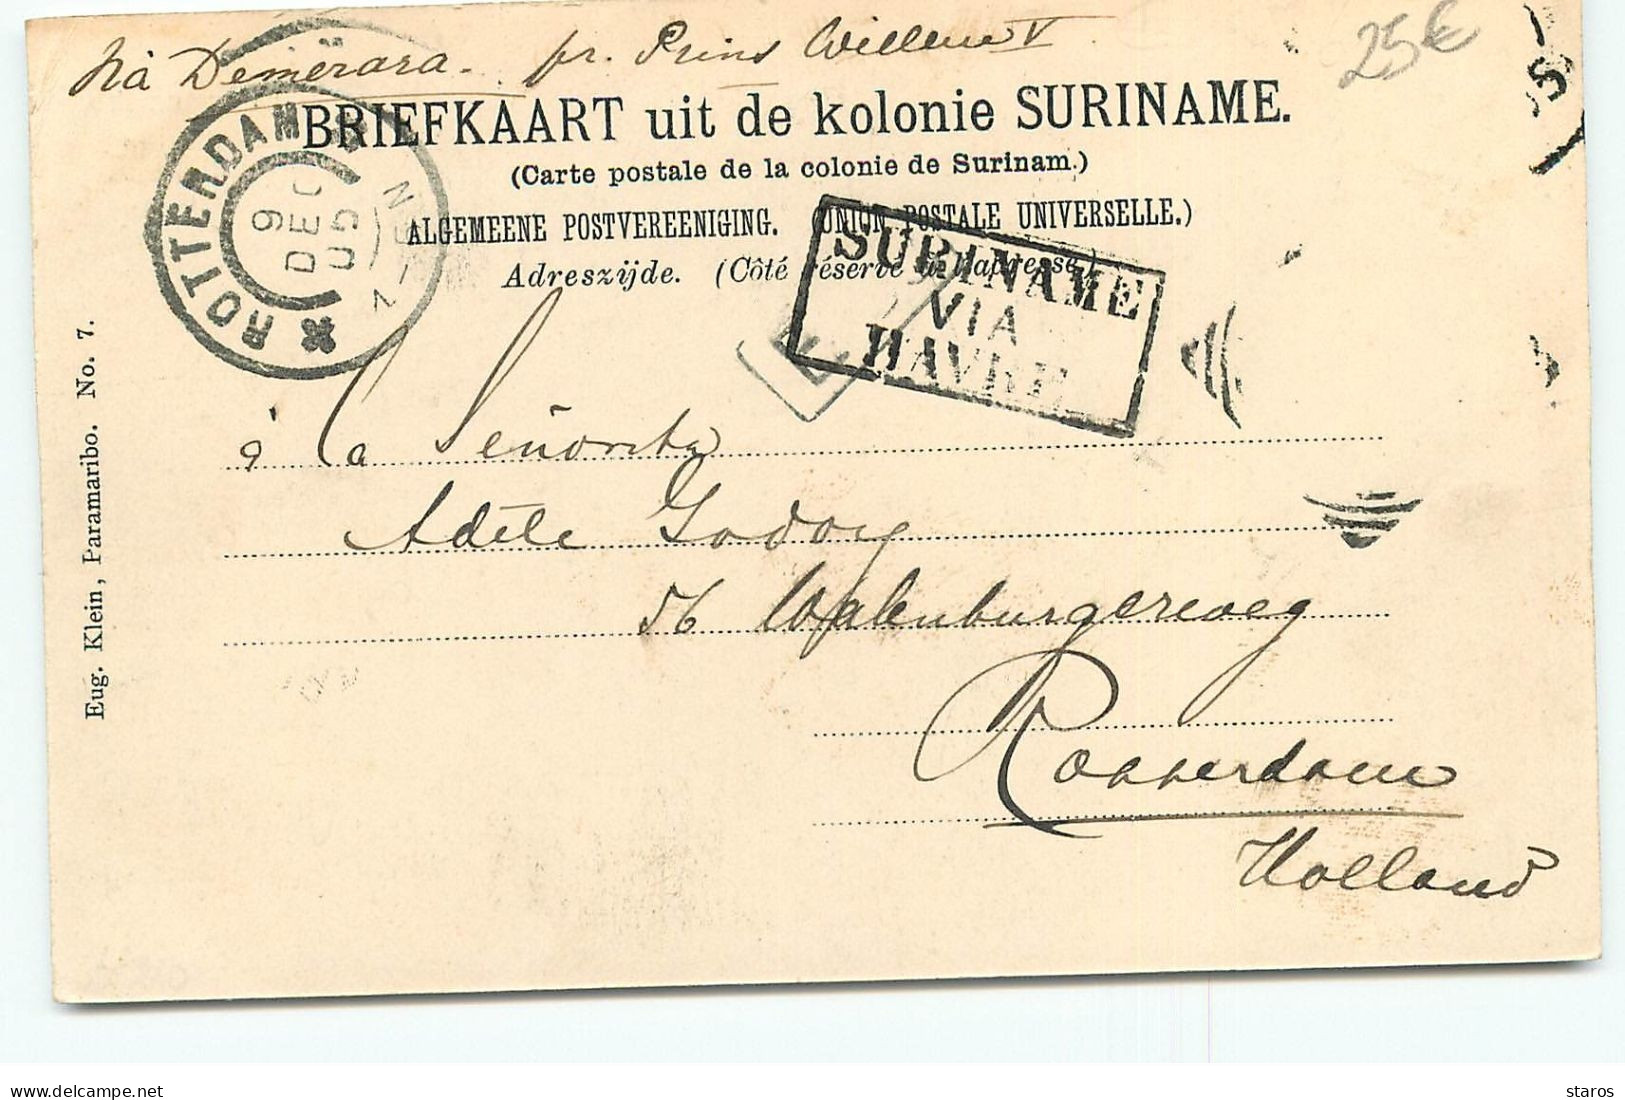 via Demerara. pr. Prins Willem V
25€
BRIEFKAART uit de kolonie SURINAME.
(Carte postale de la colonie de Surinam.)
ALGEMEENE POSTVEREENIGING. (UNION POSTALE UNIVERSELLE.)
Adreszijde. (Côté réservé à l'adresse.)
ROTTERDAM
9
DEC
05
SURINAME
VIA
HAVRE
à La Señorita
Adèle Godoy
56 Walenburgerweg
Rotterdam
Holland
Eug. Klein, Paramaribo. No. 7.
delcampe.net
staros